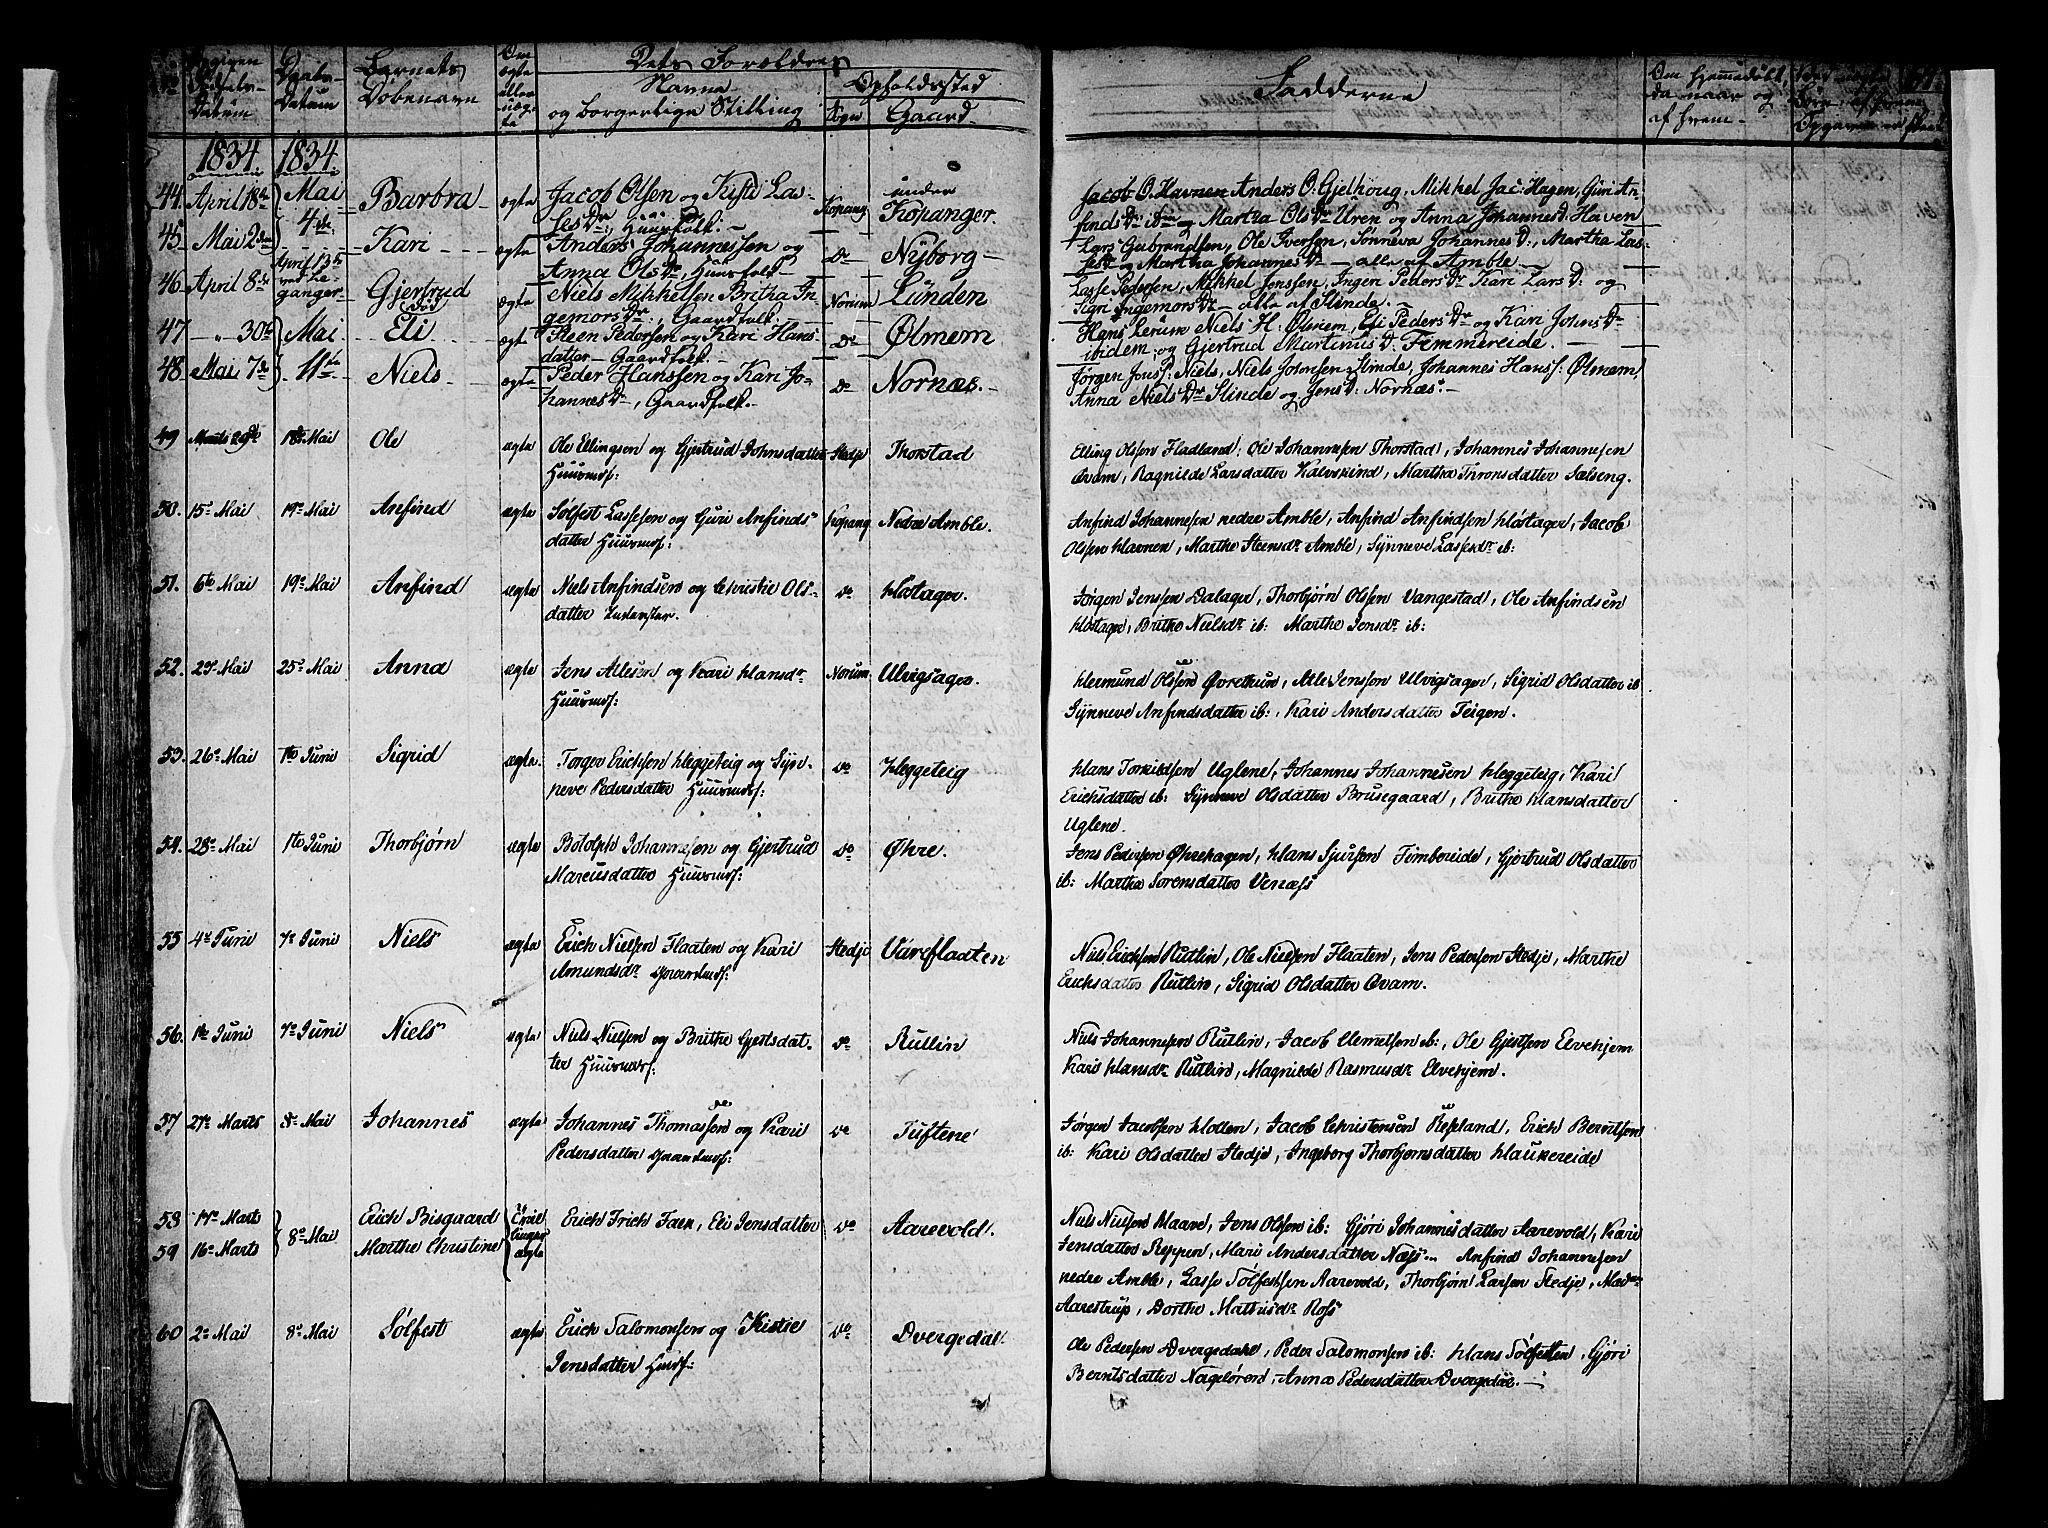 Barnets Døbenavn
Dets Forældres
Navne og borgerlige Stilling
Opholdssted
Sogn Gaard
Fadderne
Om hjemmedøbt, da naar og af hvem
1834. 1834.
44. April 18de Mai 4de Barbra ægte Jacob Olsen og Kisti Lassesdr, Huusfolk. Kopang under Kopanger
Jacob O. Havnen Anders O. Gjelhoug, Mikkel Jac: Hagen, Guri An-
finds Dr ibm og Martha Ols Dr Uren og Anna Johannes D. Haven
45. Mai 2den Kari ægte Anders Johannessen og Anna Ols Dr, Huusfolk do Nyborg
Lars Gubrandsen, Ole Iversen, Sønneva Johannes D., Martha Las-
ses Dr og Martha Johannes D alle af Amble.
46 April 8de April 13de ved Leganger Gjertrud død ægte Niels Mikkelsen Britha Ingemors Dr, Gaardfolk. Norum Lunden
Lasse Pedersen, Mikkel Jonssen, Ingen Peders Dr Kari Lars D. og
Sigri Ingemors Dr alle af Slinde.
47 " 30te Mai Eli ægte Steen Pedersen og Kari Hansdatter Gaardfolk. do Ølmem
Hans Lerum Niels H: Ølmem, Eli Peders Dr og Kari Johns Dr
ibidem, og Gjertrud Martinus D. Femmereide.
48 Mai 7de 11te Niels ægte Peder Hanssen og Kari Johannes Dr, Gaardfolk. do Nornæs.
Jørgen Jons: Niels, Niels Johnsen Slinde, Johannes Hans: Ølmem,
Anna Niels Dr Slinde og Jens D: Nornæs.
49 Marts 29de 18de Mai Ole ægte Ole Ellingsen og Gjertrud Johnsdatter Huusmdf: Stedje Thorstad
Elling Olssen Fladland, Ole Johannesen Thorstad, Johannes Johannesen
Qvam, Ragnilde Larsdatter Kalvskind, Martha Thronsdatter Sælseng.
50. 15de Mai 19de Mai Anfind ægte Sølfest Lassesen og Guri Anfinds datter Huusmdf: Kopang Nedre Amble.
Anfind Johannesen nedre Amble, Anfind Anfindsen Høstager, Jacob
Olssen Havnen, Marthe Steensdr Amble, Synneve Lassesdr ib:
51. 6te Mai 19de Mai Anfind ægte Niels Anfindsen og Christie Olsdatter Inderster. do Høstager.
Jørgen Jenssen Dalager, Thorbjørn Olssen Vangestad, Ole Anfindsen
Høstager, Brithe Nielsdr ib: Marthe Jensdr ib:
52. 29. Mai 25de Mai Anna ægte Jens Atlesen og Kari Hansdr Huusmdf: Norum Ulvigsager.
Hermund Olssen Øvrethun, Atle Jenssen Ulvigsager, Sigrid Olsdatter ib
Synneve Anfindsdatter ib:, Kari Andersdatter Teigen.
53. 26de Mai 1te Juni Sigrid ægte Torger Erichsen Heggeteig og Synneve Pedersdatter Huusmdf: do Heggeteig
Hans Torkildsen Uglene, Johannes Johannesen Heggeteig, Kari
Erichsdatter ib: Synneve Olsdatter Brusegaard, Brithe Hansdatter
Uglene.
54. 28de Mai 1te Juni Thorbjørn ægte Botolph Johannesen og Gjertrud Marcusdatter Huusmdf: do Øhre.
Jens Pedersen Øhrehagen, Hans Sjursen Fimbereide, Gjertrud Olsdatter
ib: Martha Sørensdatter Venæss
55 4de Juni 7de Juni Niels ægte Erich Nielsen Flaaten og Kari Amundsdr Gaardmdf: Stedje Vareflaaten
Niels Erichsen Rutlin, Ole Nielsen Flaaten, Jens Pedersen Stedje, Marthe
Erichsdatter Rutlin, Sigrid Olsdatter Qvam.
56. 1te Juni 7de Juni Niels ægte Niels Nielsen og Brithe Gjestsdatter Huusmdf: do Rutlin
Niels Johannesen Rutlin, Jacob Clemetsen ib:, Ole Gjestsen Elvehjem
Kari Hansdr Rutlin, Magnilde Rasmusdr Elvehjem.
57 27de Marts 8de Mai Johannes ægte Johannes Thomassen og Kari Pedersdatter Gaardmdf: do Tuftene
Jørgen Jacobsen Hollen, Jacob Christensen Røseland, Erich Berntsen
ib: Kari Olsdatter Stedje, Ingeborg Thorbjørnsdatter Haukereide
58 17de Marts 8de Mai Erich Bisgaard Tvillinger ægte Erich Frich Faer, Eli Jensdatter do Aarevold.
59 16de Marts Marthe Christine
Niels Nielsen Haave, Jens Olssen ib: Gjøri Johannesdatter Aarevold, Kari
Jensdatter Reppen, Mari Andersdatter Næss. Anfind Johannesen
nedre Amble, Lasse Sølfestsen Aarevold, Thorbjørn Larsen Stedje, Mad:
Aarestrup, Dorthe Mathisdr Ross
60 2de Mai 8de Mai Sølfest ægte Erich Salomonsen og Kistie Jensdatter Huusf: do Dvergedal.
Ole Pedersen Dvergedahl, Peder Salomonsen ib: Hans Sølfesten, Gjøri
Berntsdatter Nageløren, Anna Pedersdatter Dvergedal.